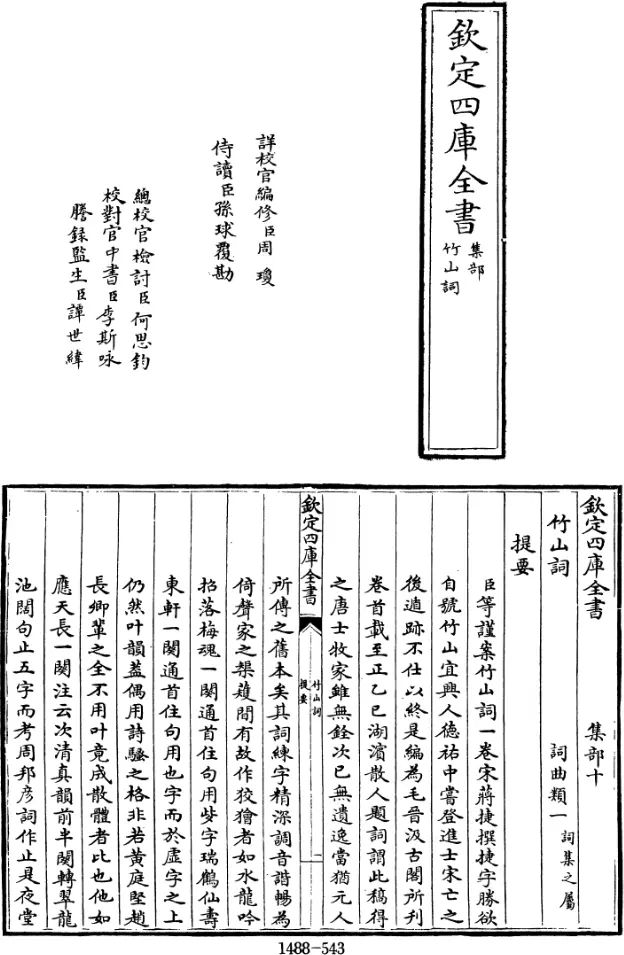 欽定四庫全書
集部
竹山詞
詳校官編修臣周瓊
侍讀臣孫球覆勘
總校官檢討臣何思鈞
校對官中書臣李斯咏
謄錄監生臣譚世緯
欽定四庫全書 集部十
竹山詞 詞曲類一 詞集之屬
提要
臣等謹案竹山詞一卷宋蔣捷撰捷字勝欲
自號竹山宜興人德祐中嘗登進士宋亡之
後遁跡不仕以終是編為毛晉汲古閣所刋
卷首載至正乙巳湖濱散人題詞謂此稿得
之唐士牧家雖無銓次已無遺逸當猶元人
欽定四庫全書
竹山詞
提要
一
所傳之舊本矣其詞練字精深調音諧暢為
倚聲家之榘矱間有故作狡獪者如水龍吟
招落梅魂一闋通首住句用些字瑞鶴仙壽
東軒一闋通首住句用也字而於虛字之上
仍然叶韻葢偶用詩騷之格非若黃庭堅趙
長卿輩之全不用叶竟成散體者比也他如
應天長一闋注云次清真韻前半闋轉翠龍
池闊句止五字而考周邦彦詞作止是夜堂
1488-543